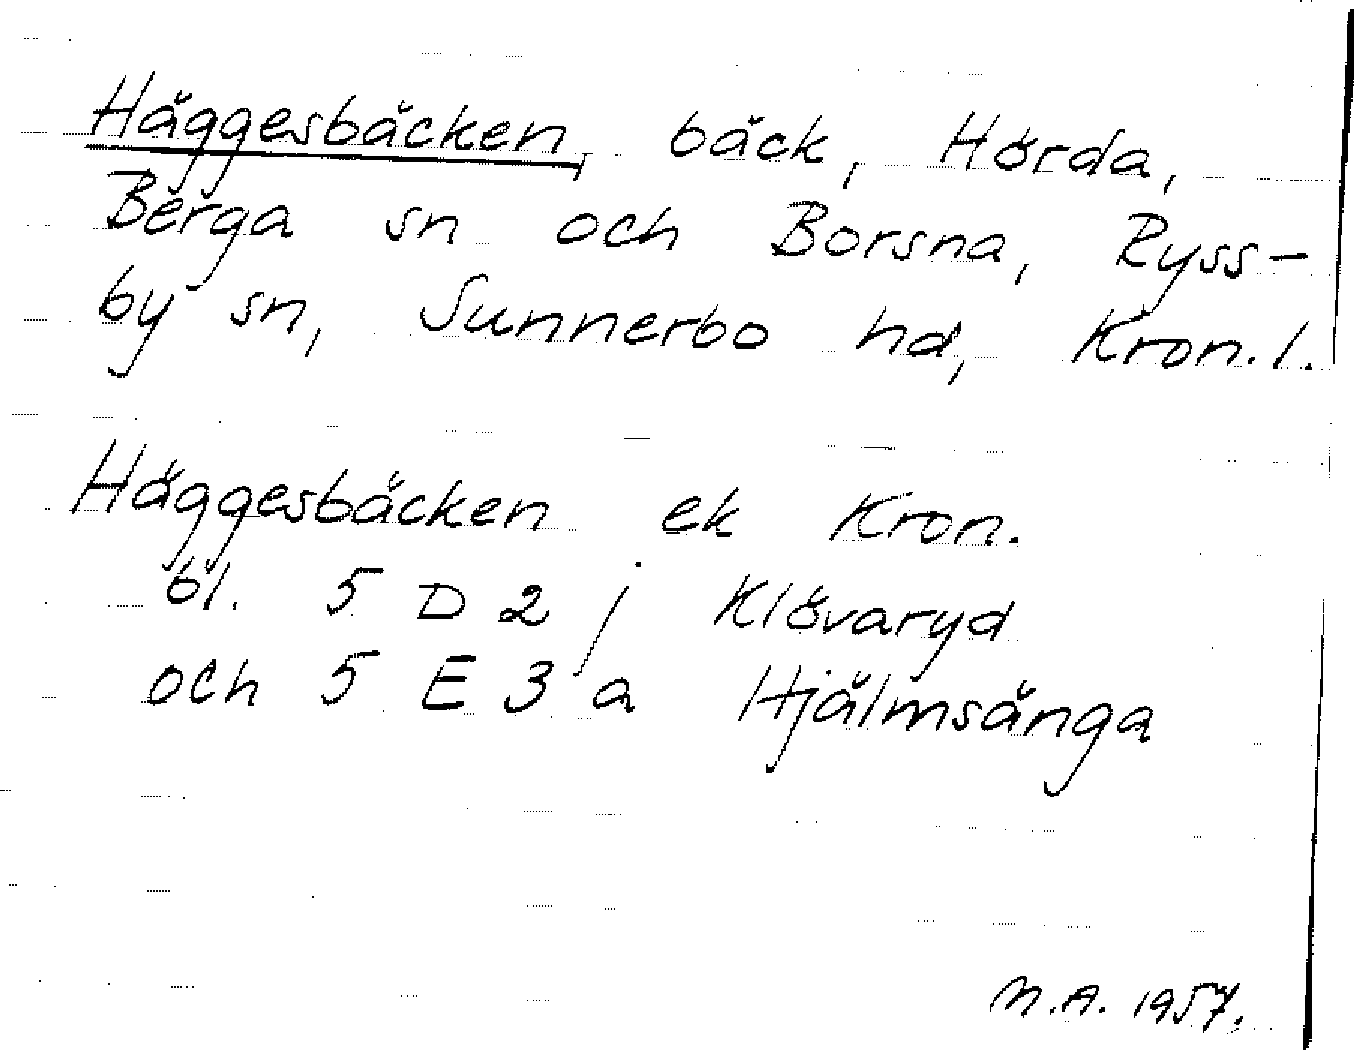 Häggesbäcken, bäck, Hörda,
Berga sn och Borsna, Ryss-
by sn, Sunnerbo hd, Kron.l.
Häggesbäcken ek Kron.
bl. 5 D 2 j Klövaryd
och 5 E 3 a Hjälmsänga
M.A. 1957.